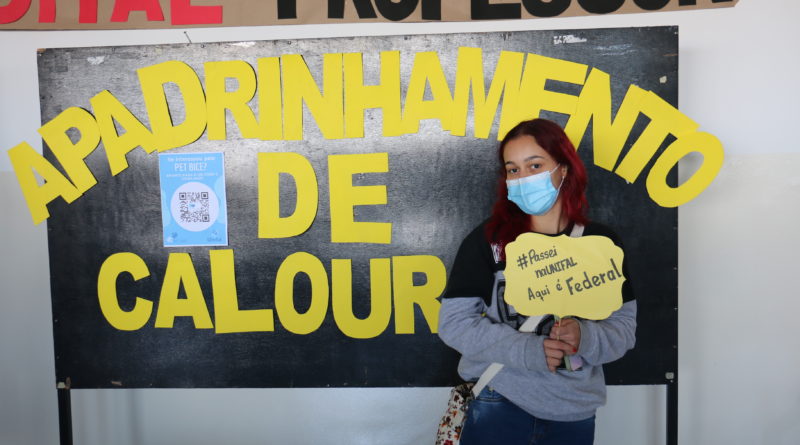 PROFESSOR
APADRINHAMENTO
DE
CALOUR
Se interessou pelo
PET BICE?
#Passei
noUNIFAL
Aqui é Federal